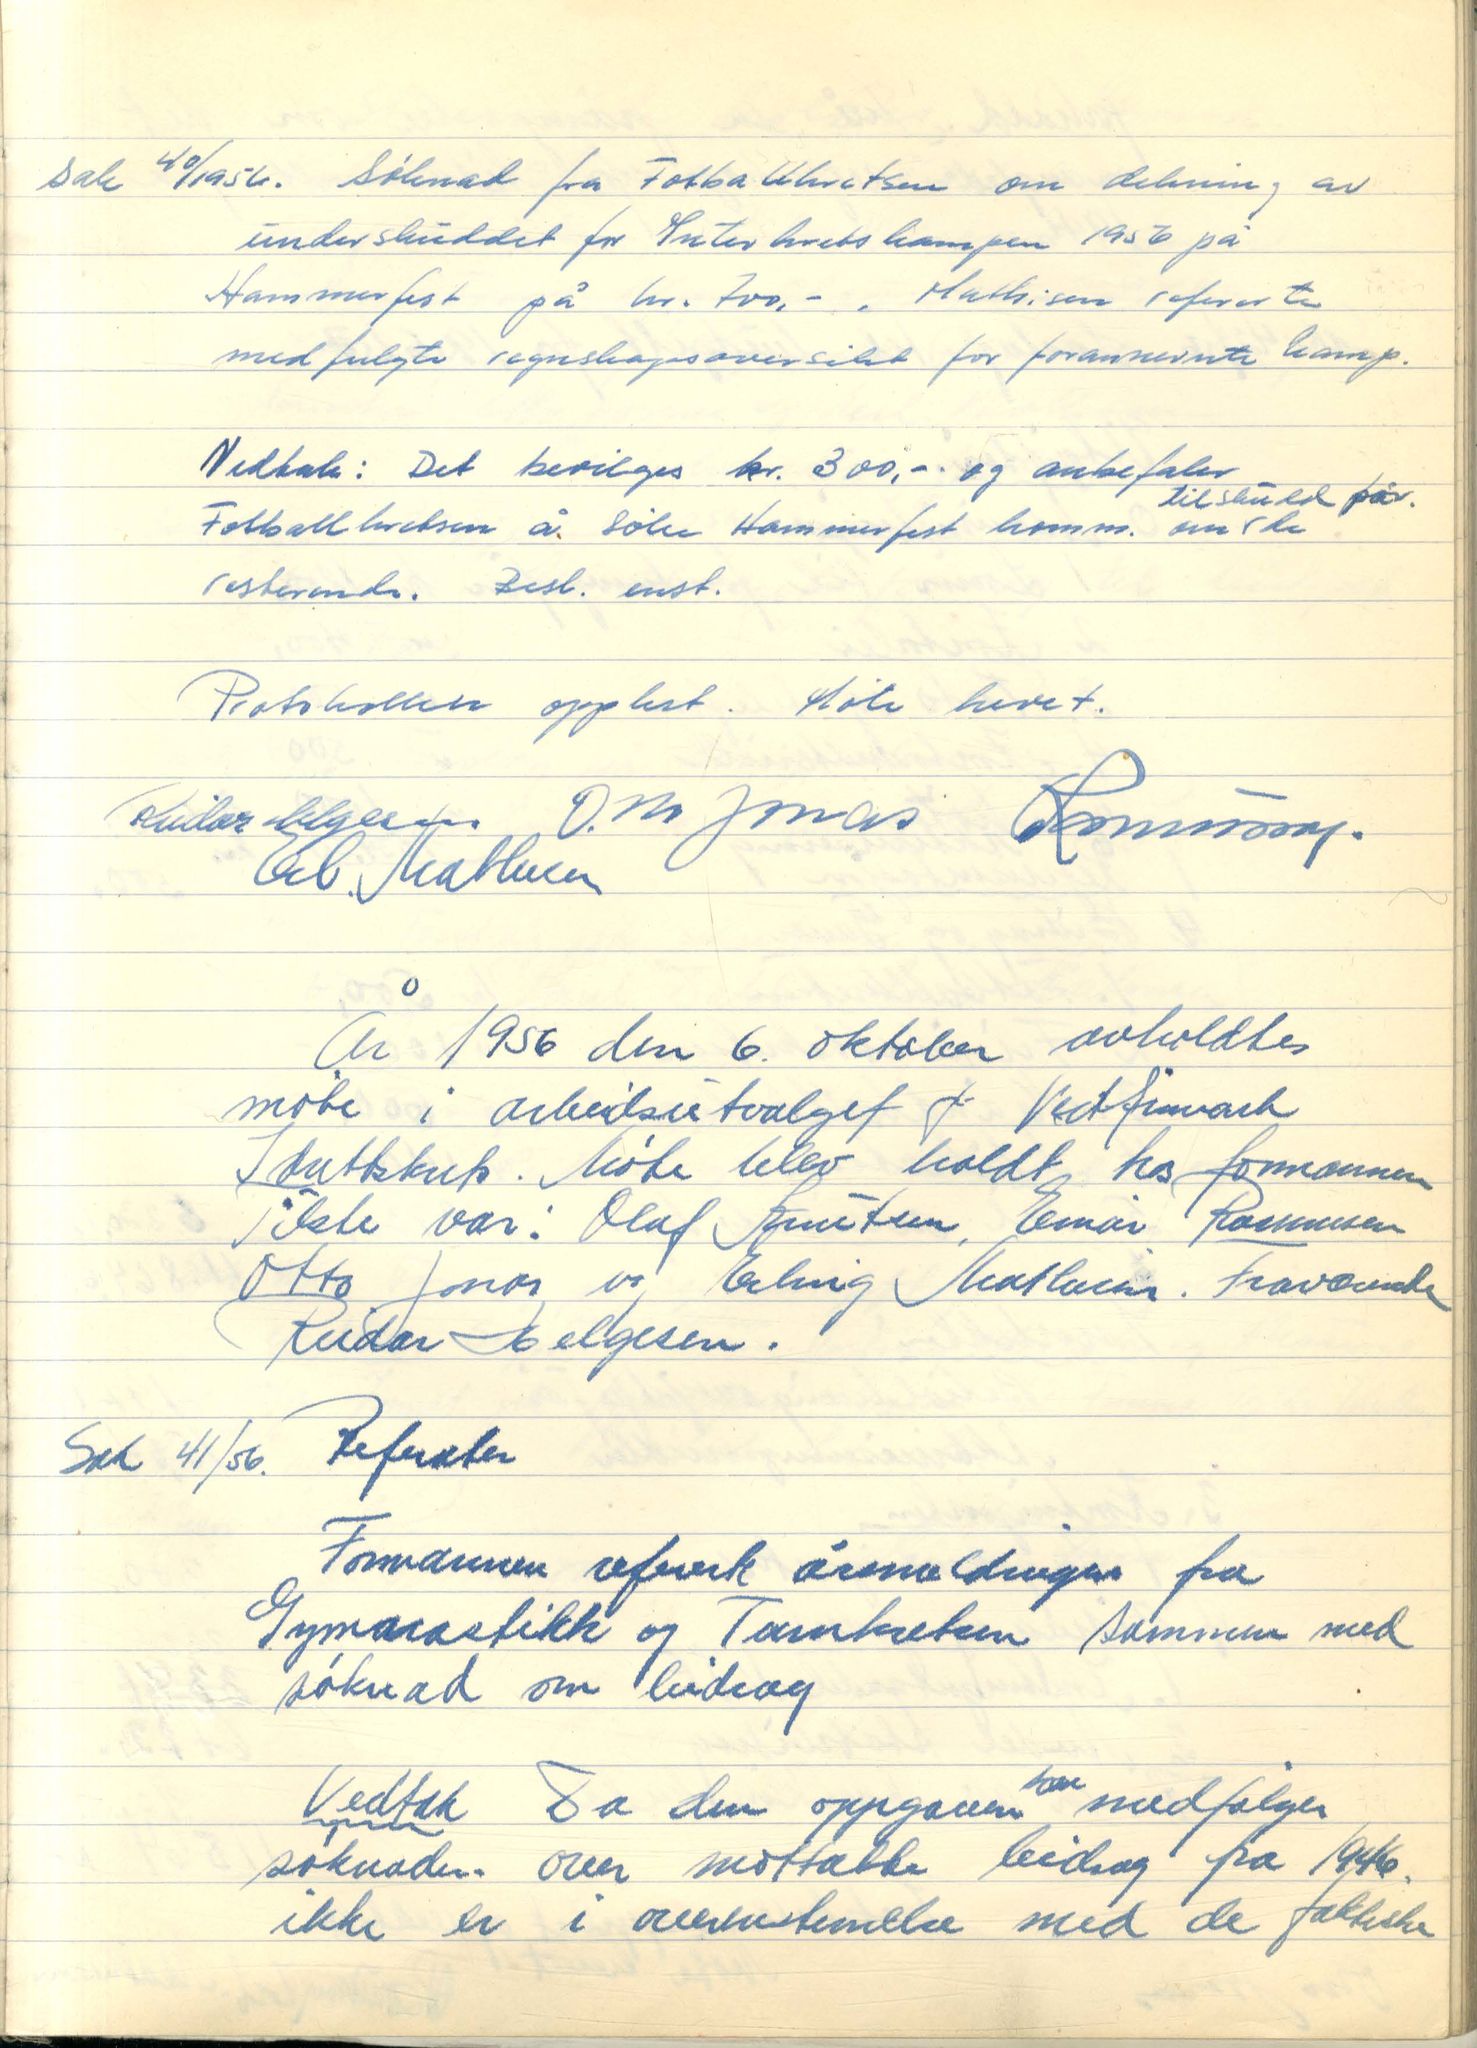 Sak 40/1956. Søknad fra Fotballkretsen om dekning av
underskuddet for Interkretskampen 1956 på
Hammerfest på kr. 700,-. Mathisen refererte
medfulgte regnskapsoversikt for forannevnte kamp.
Vedtak: Det bevilges kr. 300,-. og anbefaler
Fotballkretsen å søke Hammerfest komm. om tilskudd for
resterende. Besl. enst.
Protokollen opplest. Møte hevet.
Reidar Helgesen O. M. Jonas
Erl. Mathisen
År 1956 den 6. oktober avholdtes
møte i arbeidsutvalget f. Vestfinmark
Idrettskrets. Møte blev holdt hos formannen
Tilste var: Olaf Knutsen, Einar Rasmussen
Otto Jonas og Erling Mathisen. Fraværende
Reidar Helgesen.
Sak 41/56. Referater
Formannen referete årsmeldingen fra
Gymnastikk og Turnkretsen sammen med
søknad om bidrag
Vedtak Da den oppgaven som medfølger
søknaden over mottatte bidrag fra 1946.
ikke er i overenstemelse med de faktiske